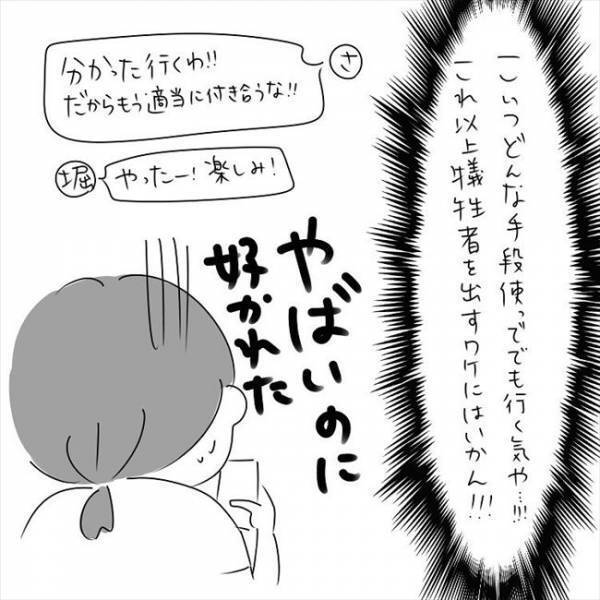 こいつどんな手段使っでも行く気や…!!!
これ以上犠牲者を出すワケにはいかん!!!
さ
分かった行くわ!!
だからもう適当に付き合うな!!
堀
やったー!楽しみ!
やばいのに
好かれた